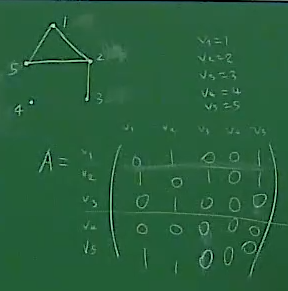 1
5
2
4
3
V₁=1
V₂=2
V₃=3
V₄=4
V₅=5
V₁ V₂ V₃ V₄ V₅
A =
V₁ 0 1 0 0 1
V₂ 1 0 1 0 1
V₃ 0 1 0 0 0
V₄ 0 0 0 0 0
V₅ 1 1 0 0 0